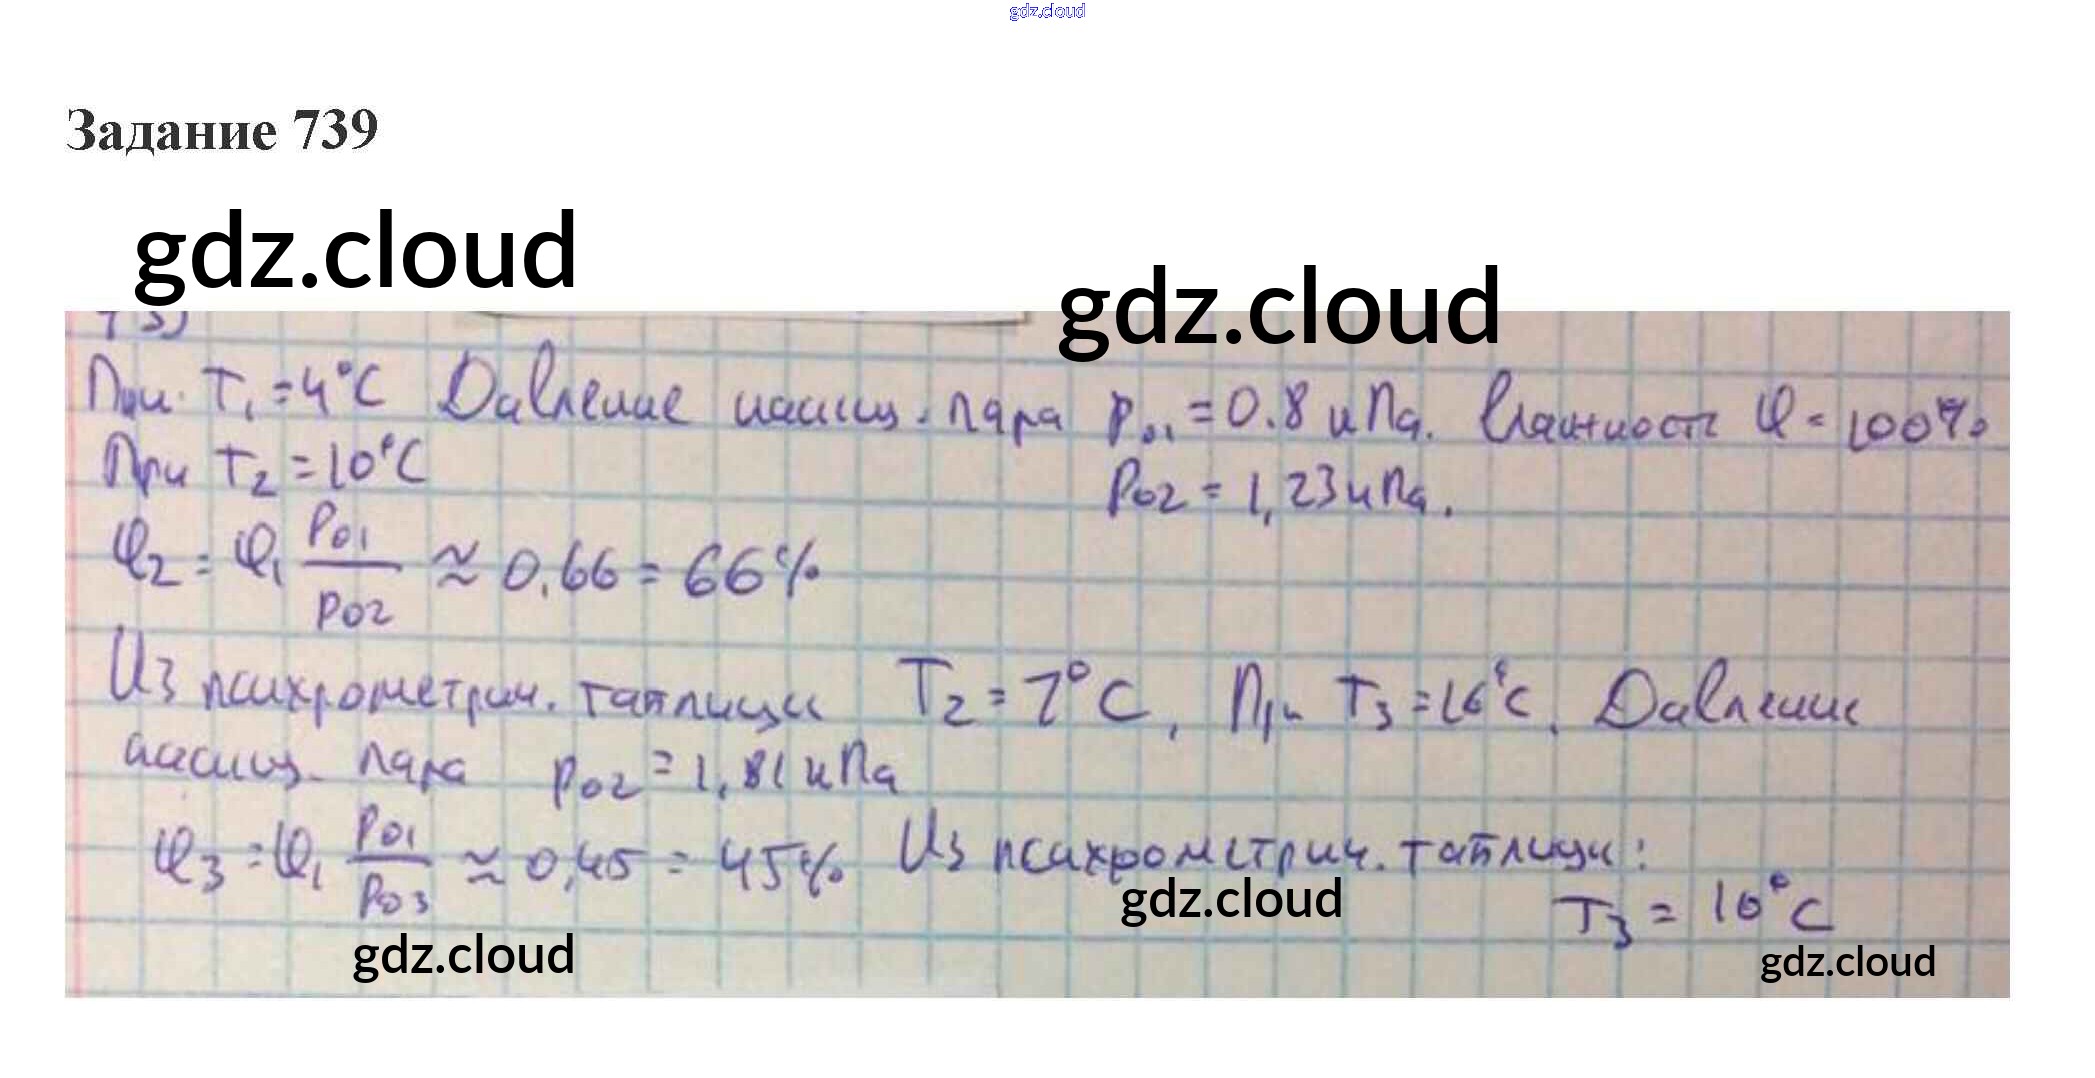 gdz.cloud
Задание 739
gdz.cloud
gdz.cloud
При T₁ = 4°C Давление насыщ. пара p₀₁ = 0.8 кПа. Влажность φ = 100%
При T₂ = 10°C p₀₂ = 1,23 кПа.
φ₂ = φ₁ p₀₁/p₀₂ ≈ 0,66 = 66%
Из психрометрич. таблицы T₂ = 7°C, При T₃ = 16°C. Давление
насыщ. пара p₀₂ = 1,81 кПа
φ₃ = φ₁ p₀₁/p₀₃ ≈ 0,45 = 45% Из психрометрич. таблицы:
gdz.cloud
T₃ = 10°C
gdz.cloud
gdz.cloud